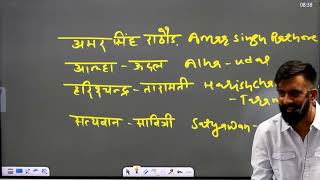 08:38
अमर सिंह राठौड़ Amar Singh Rathore
आल्हा - ऊदल Alha - udal
हरिश्चन्द्र - तारामती Harishcha
- Taram
सत्यवान - सावित्री Satyawan -